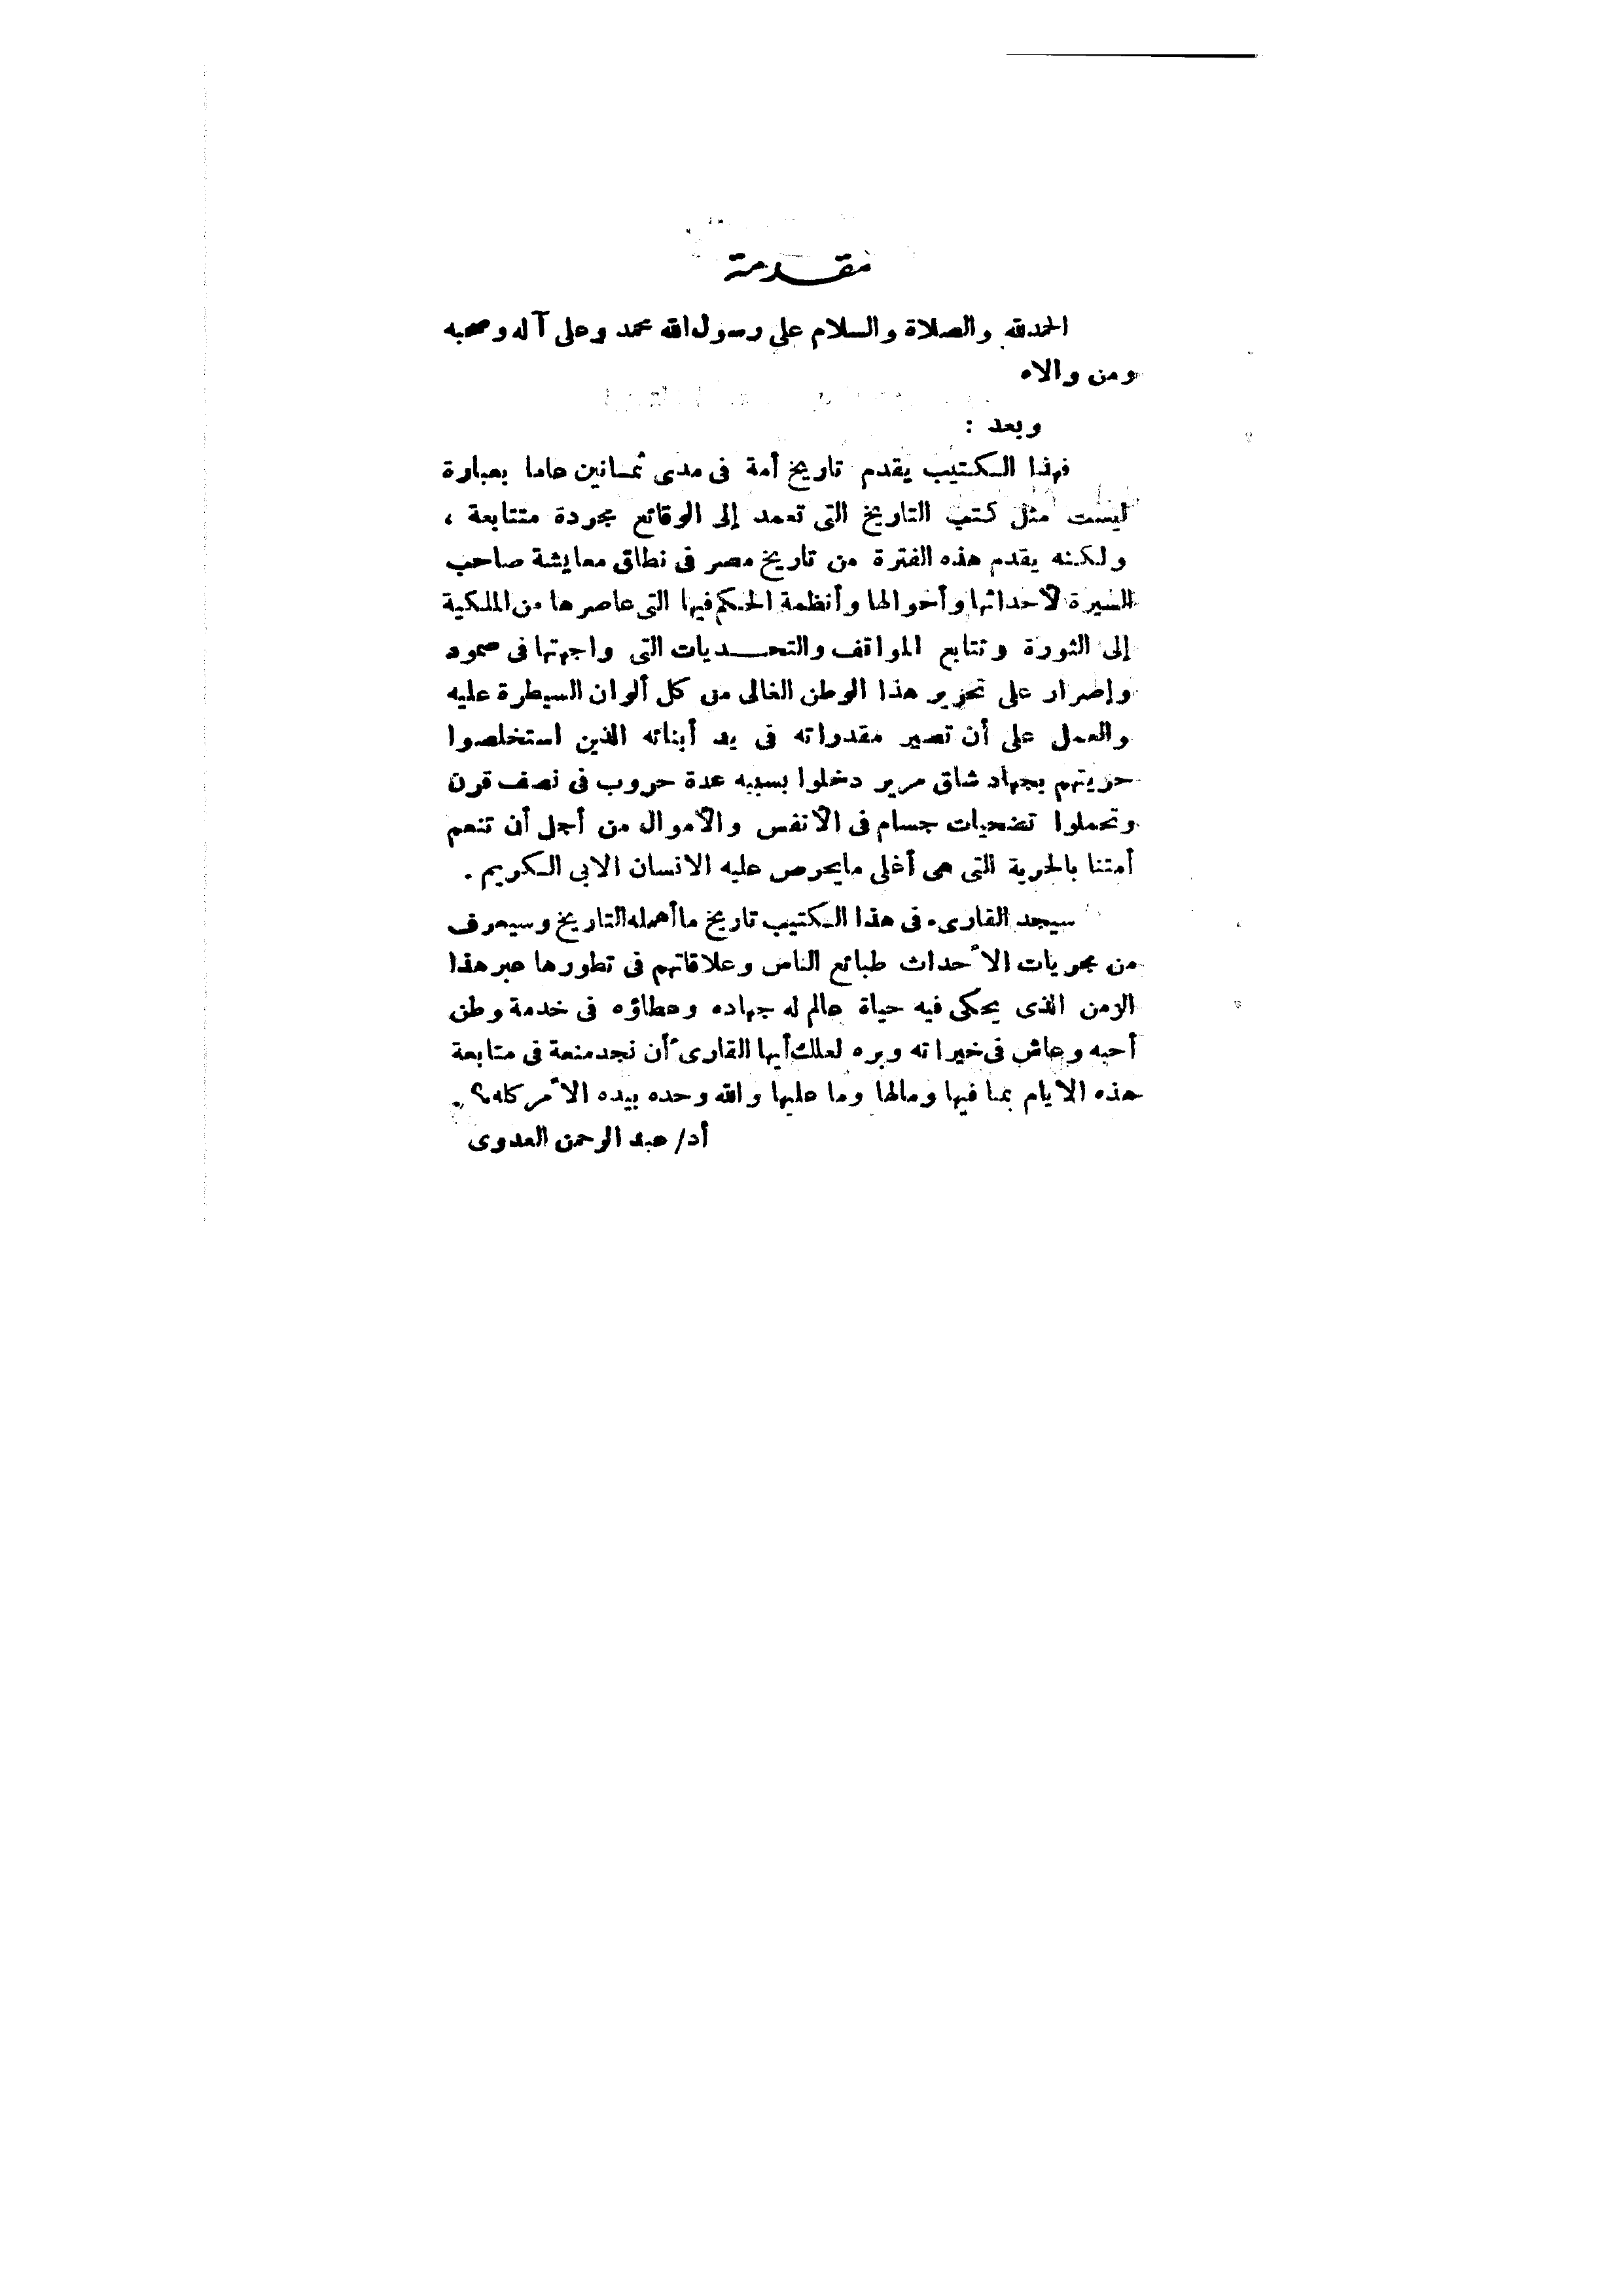 مقدمة
الحمد لله والصلاة والسلام على رسول الله محمد وعلى آله وصحبه
ومن والاه
وبعد :
فهذا الكتيب يقدم تاريخ أمة فى مدى ثمانين عاما بعبارة
ليست مثل كتب التاريخ التى تعمد إلى الوقائع مجردة متتابعة ،
ولكنه يقدم هذه الفترة من تاريخ مصر فى نطاق معايشة صاحب
السيرة لأحداثها وأحوالها وأنظمة الحكم فيها التى عاصرها من الملكية
إلى الثورة وتتابع المواقف والتحديات التى واجهتها فى صمود
وإصرار على تحرير هذا الوطن الغالى من كل ألوان السيطرة عليه
والعمل على أن تصير مقدراته فى يد أبنائه الذين استخلصوا
حريتهم بجهاد شاق مرير دخلوا بسببه عدة حروب فى نصف قرن
وتحملوا تضحيات جسام فى الأنفس والأموال من أجل أن تنعم
أمتنا بالحرية التى هى أغلى ما يحرص عليه الانسان الابى الكريم .
سيجد القارىء فى هذا الكتيب تاريخ ما أهمله التاريخ وسيعرف
من مجريات الأحداث طبائع الناس وعلاقاتهم فى تطورها عبر هذا
الزمن الذى يحكى فيه حياة عالم له جهاده وعطاؤه فى خدمة وطن
أحبه وعاش فى خيراته وبره لعلك أيها القارئ أن تجد متعة فى متابعة
هذه الايام بما فيها ومالها وما عليها والله وحده بيده الأمر كله .
أد/ عبد الرحمن العدوى